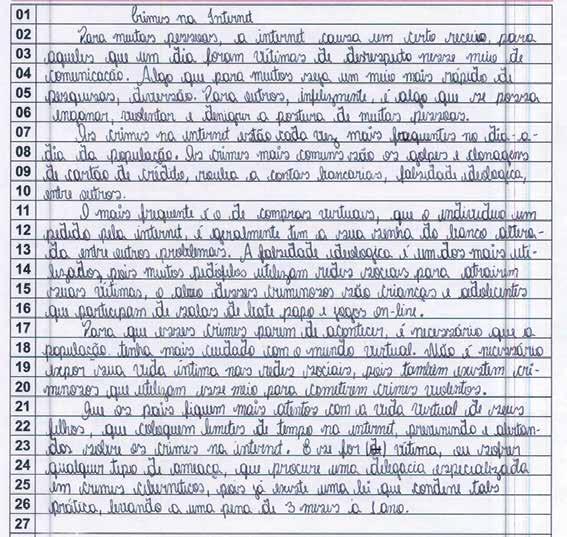 01 Crimes na Internet
02 Para muitas pessoas, a internet causa um certo receio, para
03 aqueles que um dia foram vítimas de desrespeito nesse meio de
04 comunicação. Algo que para muitos seja um meio mais rápido de
05 pesquisas, diversão. Para outros, infelizmente, é algo que se possa
06 enganar, violentar e denigrir a postura de muitas pessoas.
07 Os crimes na internet estão cada vez mais frequentes no dia-a-
08 dia da população. Os crimes mais comuns são os golpes e clonagens
09 de cartão de crédito, roubo a contas bancarias, falsidade ideologica,
10 entre outros.
11 O mais frequente é o de compras virtuais, que o individuo um
12 pedido pela internet, é geralmente tem a sua senha do banco altera-
13 da entre outros problemas. A falsidade ideologica, é um dos mais uti-
14 lizados, pois muitos pedófilos utilizam redes sociais para atrairem
15 suas vítimas, o alvo desses criminosos são crianças e adolecentes
16 que participam de salas de bate papo e jogos on-line.
17 Para que esses crimes parem de acontecer, é necessário que a
18 população tenha mais cuidado com o mundo virtual. Não é necessário
19 expor sua vida íntima nas redes sociais, pois também existem cri-
20 minosos que utilizam esse meio para cometerem crimes violentos.
21 Que os pais fiquem mais atentos com a vida virtual de seus
22 filhos, que coloquem limites de tempo na internet, prevenindo e alertan-
23 dos sobre os crimes na internet. E se for (de) vítima, ou sofrer
24 qualquer tipo de ameaça, que procure uma delegacia especializada
25 em crimes ciberniticos, pois já existe uma lei que condene tals
26 prática, levando a uma pena de 3 meses à 1 ano.
27